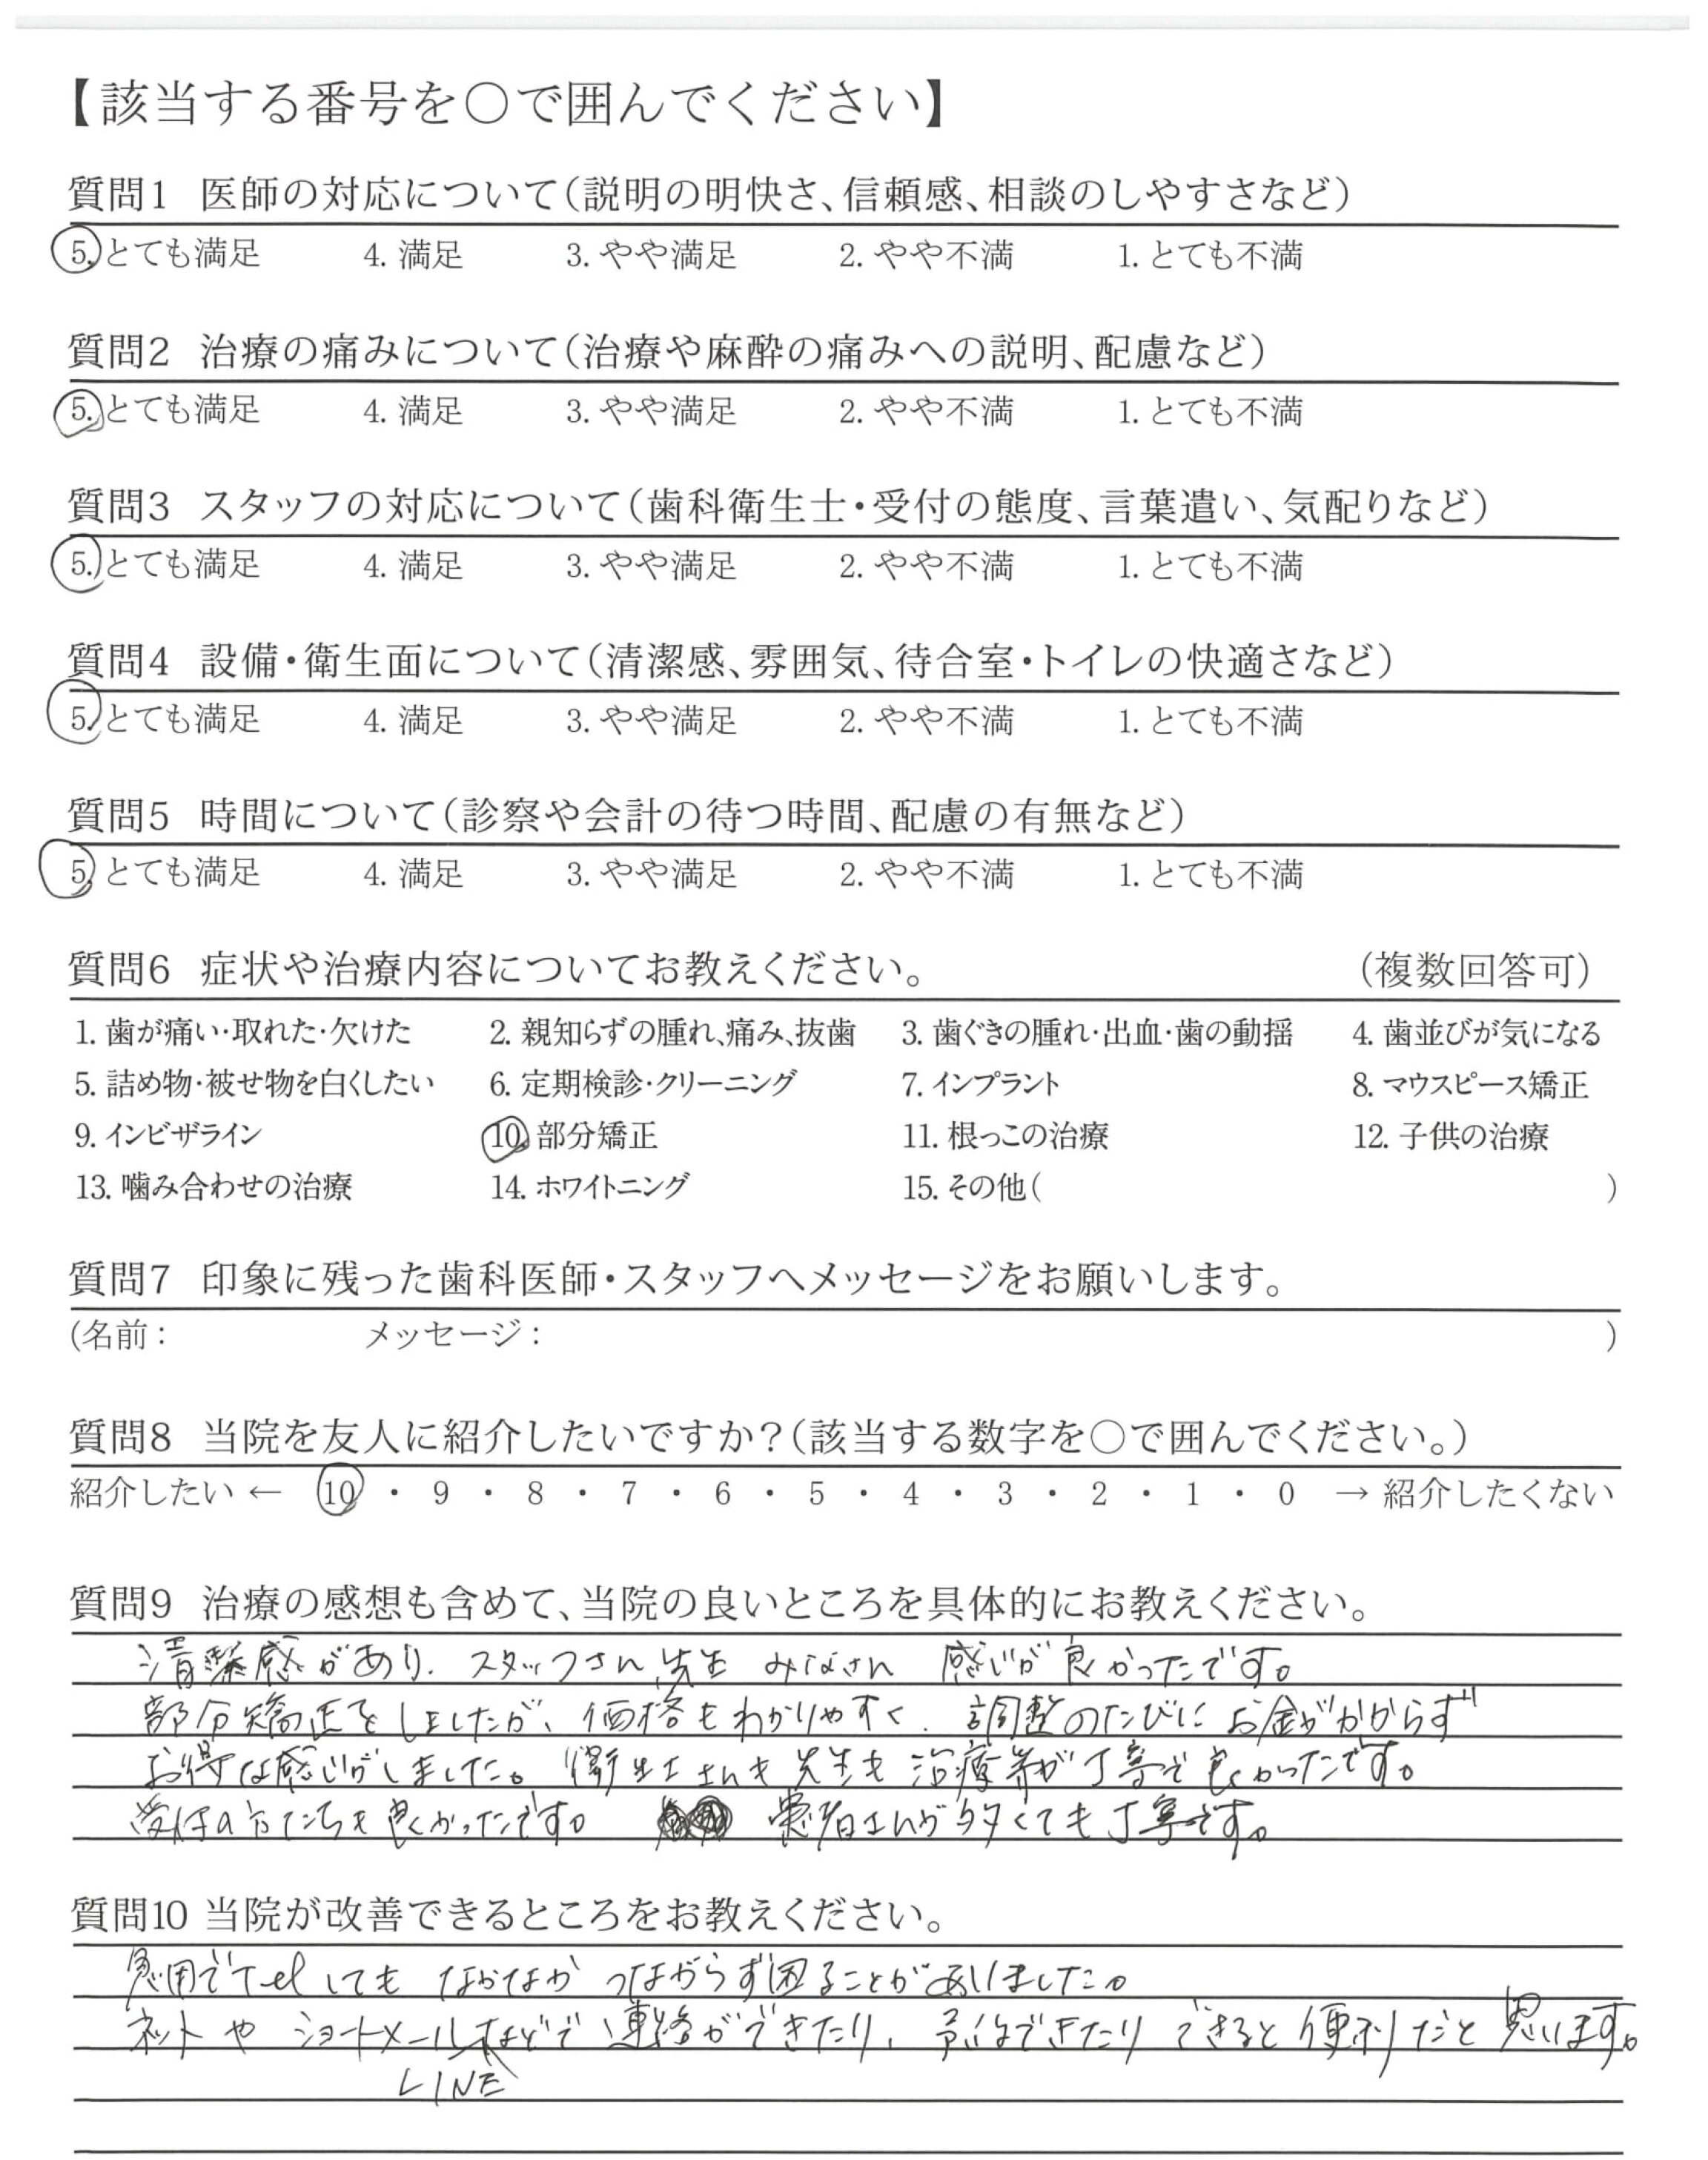 【該当する番号を○で囲んでください】
質問1 医師の対応について(説明の明快さ、信頼感、相談のしやすさなど)
5. とても満足 4. 満足 3. やや満足 2. やや不満 1. とても不満
質問2 治療の痛みについて(治療や麻酔の痛みへの説明、配慮など)
5. とても満足 4. 満足 3. やや満足 2. やや不満 1. とても不満
質問3 スタッフの対応について(歯科衛生士・受付の態度、言葉遣い、気配りなど)
5. とても満足 4. 満足 3. やや満足 2. やや不満 1. とても不満
質問4 設備・衛生面について(清潔感、雰囲気、待合室・トイレの快適さなど)
5. とても満足 4. 満足 3. やや満足 2. やや不満 1. とても不満
質問5 時間について(診察や会計の待つ時間、配慮の有無など)
5. とても満足 4. 満足 3. やや満足 2. やや不満 1. とても不満
質問6 症状や治療内容についてお教えください。 (複数回答可)
1. 歯が痛い・取れた・欠けた 2. 親知らずの腫れ、痛み、抜歯 3. 歯ぐきの腫れ・出血・歯の動揺 4. 歯並びが気になる
5. 詰め物・被せ物を白くしたい 6. 定期検診・クリーニング 7. インプラント 8. マウスピース矯正
9. インビザライン 10. 部分矯正 11. 根っこの治療 12. 子供の治療
13. 噛み合わせの治療 14. ホワイトニング 15. その他( )
質問7 印象に残った歯科医師・スタッフへメッセージをお願いします。
(名前: メッセージ: )
質問8 当院を友人に紹介したいですか?(該当する数字を○で囲んでください。)
紹介したい ← 10 ・ 9 ・ 8 ・ 7 ・ 6 ・ 5 ・ 4 ・ 3 ・ 2 ・ 1 ・ 0 → 紹介したくない
質問9 治療の感想も含めて、当院の良いところを具体的にお教えください。
清潔感があり、スタッフさん、先生 みなさん 感じが良かったです。
部分矯正をしましたが、価格もわかりやすく、調整のたびにお金がかからず
お得な感じがしました。衛生士さんも先生も治療等が丁寧で良かったです。
受付の方たちも良かったです。 患者さんが多くても丁寧です。
質問10 当院が改善できるところをお教えください。
急用でTelしても なかなか つながらず困ることがありました。
ネットや ショートメールなどで連絡ができたり、予約できたり できると便利だと思います。
LINE